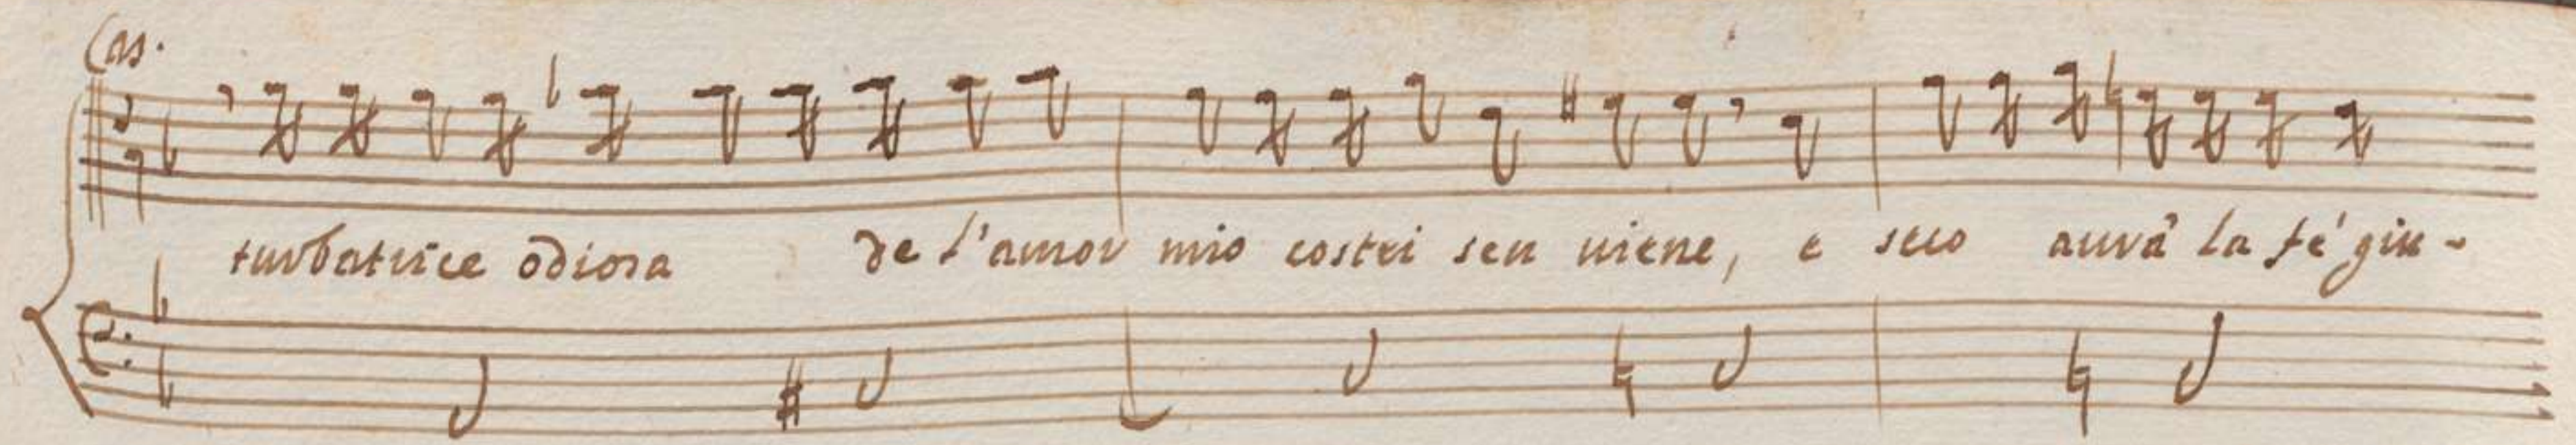 Cas.
turbatrice odiosa de l'amor mio costei sen uiene, e seco auvà la fé giu-